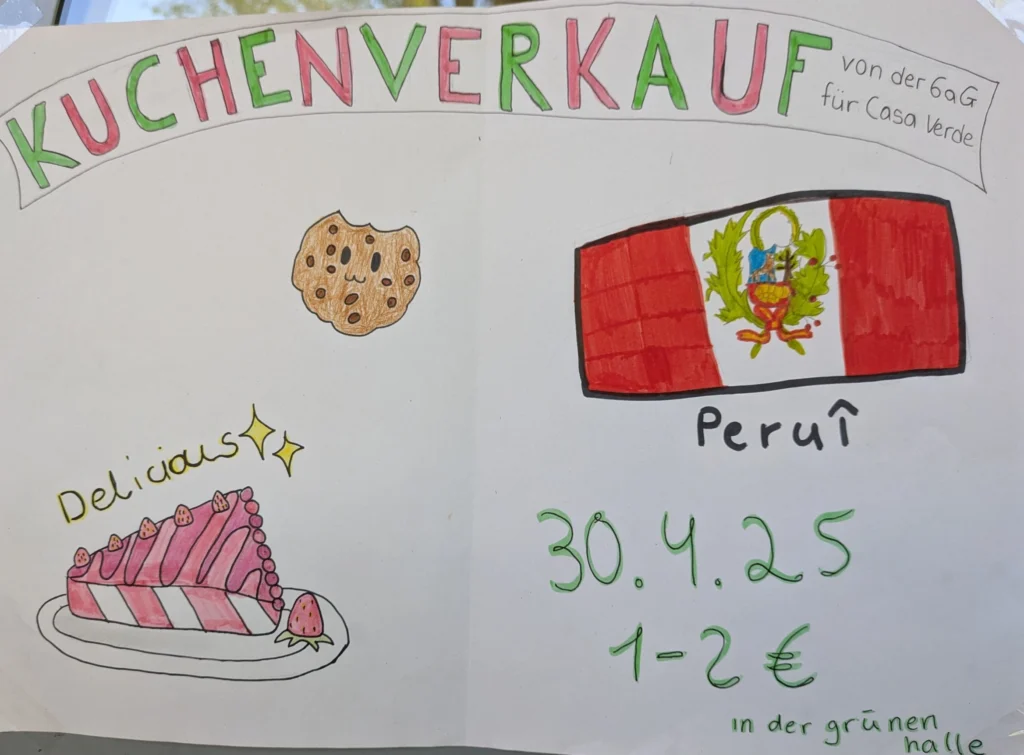 KUCHENVERKAUF
von der 6aG
für Casa Verde
Delicious
Peruî
30.4.25
1-2 €
in der grünen
halle